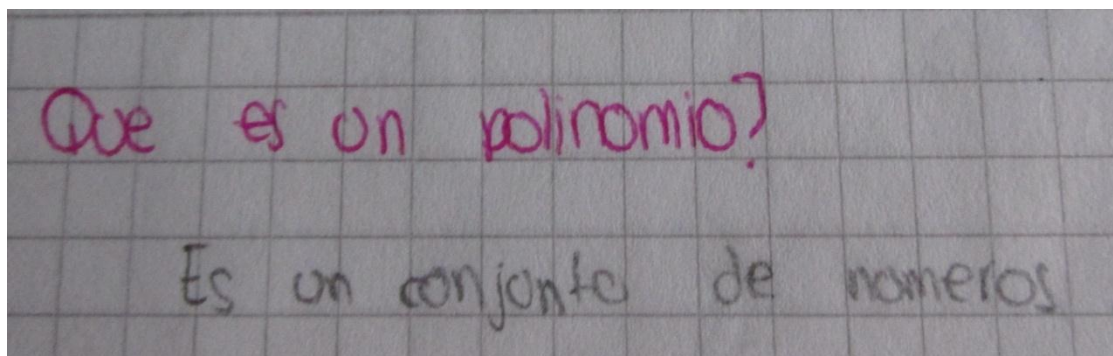 Que es un polinomio?
Es un conjunto de numeros